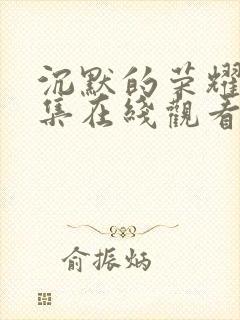 沉默的荣耀
集在綫觀看
俞振炳